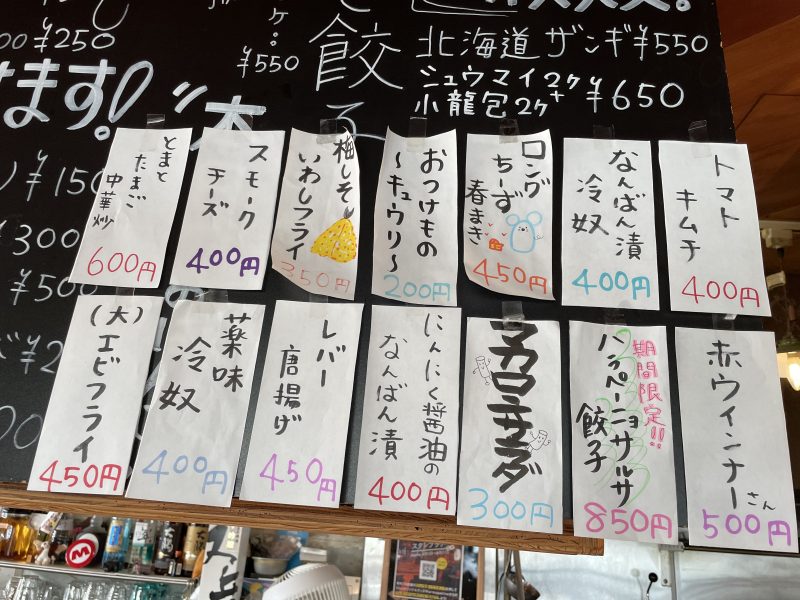 ¥250
¥550
餃子
北海道ザンギ¥550
シュウマイ2ヶ
小龍包2ヶ
¥650
ます!
¥150
¥300
¥500
とまと
たまご
中華炒
600円
スモーク
チーズ
400円
梅しそ
いわしフライ
350円
おつけもの
~キュウリ~
200円
ロング
ちーず
春まき
450円
なんばん漬
冷奴
400円
トマト
キムチ
400円
(大)エビフライ
450円
薬味
冷奴
400円
レバー
唐揚げ
450円
にんにく醤油の
なんばん漬
400円
マカロニサラダ
300円
期間限定!!
ハラペーニョサルサ
餃子
850円
赤ウインナーさん
500円